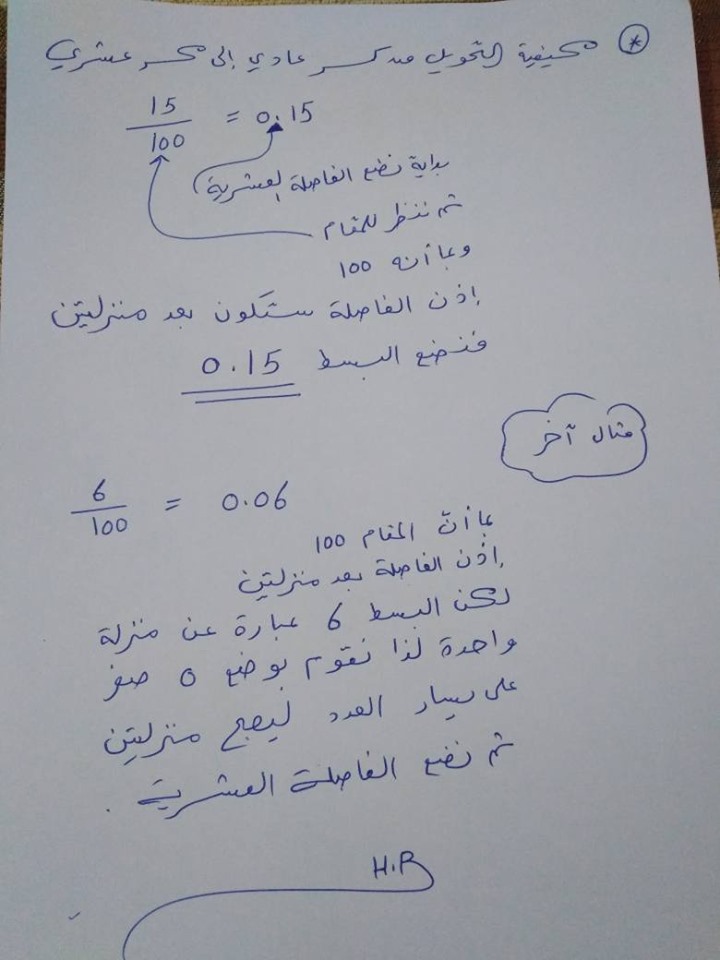 * كيفية التحويل من كسر عادي إلى كسر عشري
15/100 = 0.15
بداية نضع الفاصلة العشرية
ثم ننظر للمقام
وبما أنه 100
إذن الفاصلة ستكون بعد منزلتين
فنضع البسط 0.15
مثال آخر
6/100 = 0.06
بما أنّ المقام 100
إذن الفاصلة بعد منزلتين
لكن البسط 6 عبارة عن منزلة
واحدة لذا نقوم بوضع 0 صفر
على يسار العدد ليصبح منزلتين
ثم نضع الفاصلة العشرية .
H.R